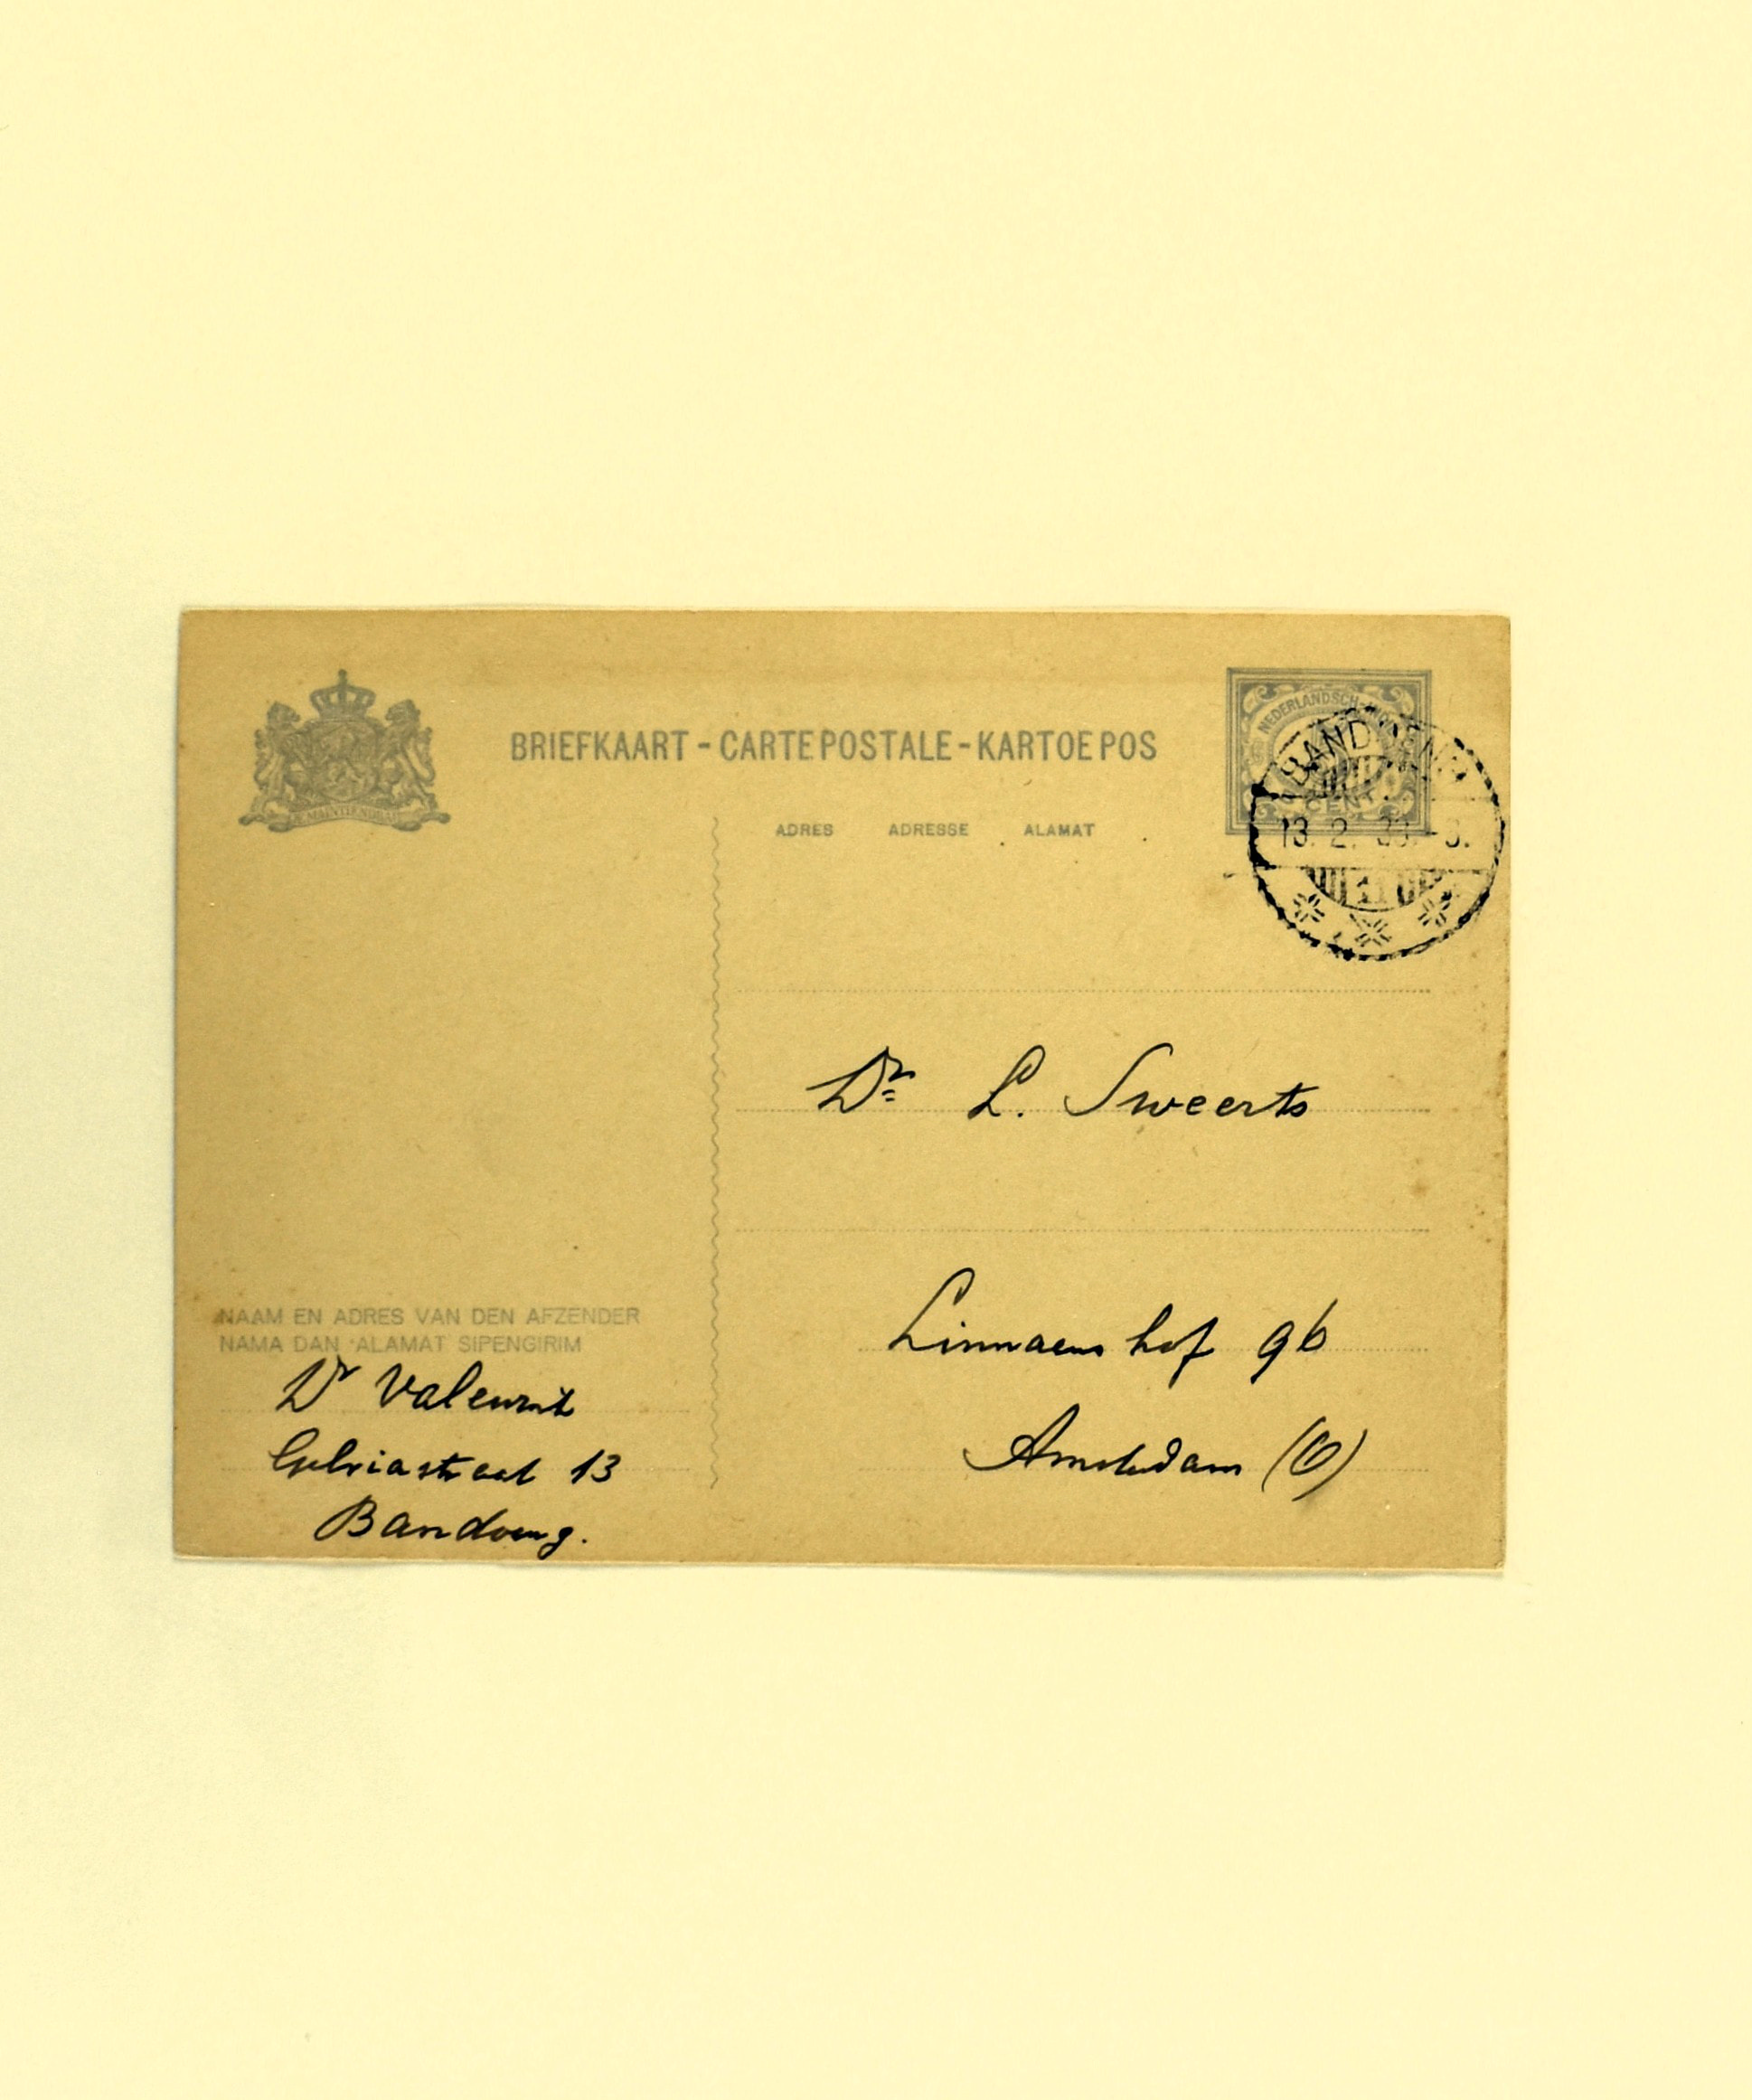 JE MAINTIENDRAI
BRIEFKAART - CARTE POSTALE - KARTOE POS
ADRES ADRESSE ALAMAT
NEDERLANDSCH-INDIË
CENT
BANDOENG
13. 2. 33. -3.
1
Dr L. Sweerts
Linnaeus hof 96
Amsterdam (O)
NAAM EN ADRES VAN DEN AFZENDER
NAMA DAN ALAMAT SIPENGIRIM
Dr
13
Bandoeng.